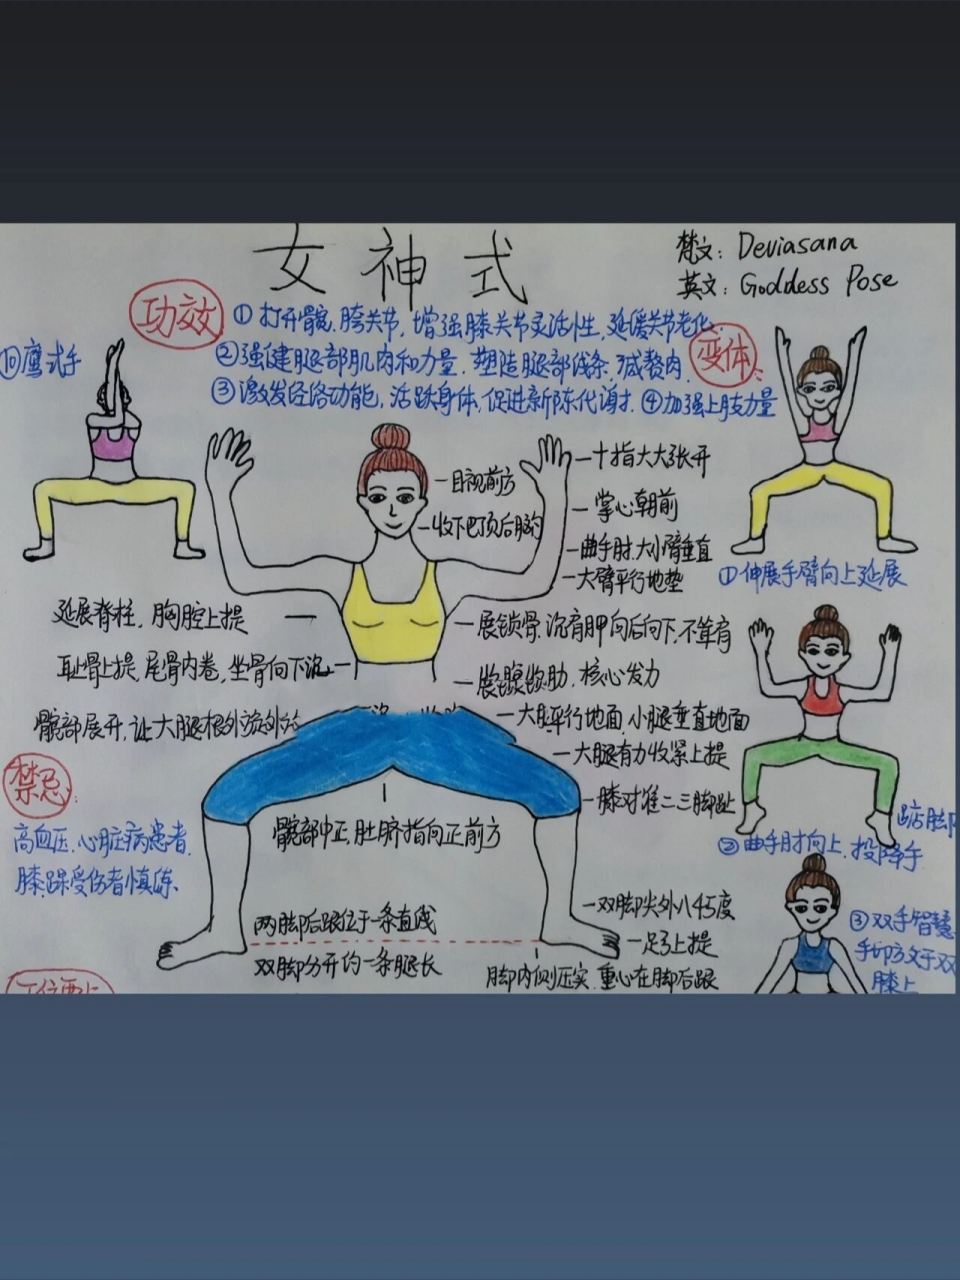 女神式
梵文：Deviasana
英文：Goddess Pose
功效
①打开髋、胯关节，增强膝关节灵活性，延缓关节老化.
②强健腿部肌肉和力量，塑造腿部线条，减赘肉.
③激发经络功能，活跃身体，促进新陈代谢. ④加强上肢力量
变体：
⑩鹰式手
目视前方
收下巴顶后脑勺
十指大大张开
掌心朝前
曲手肘，大小臂垂直
大臂平行地垫
①伸展手臂向上延展
延展脊柱，胸腔上提
展锁骨，沉肩胛向后向下，不耸肩
耻骨上提，尾骨内卷，坐骨向下沉
收腹收肋，核心发力
髋部展开，让大腿根外旋外
大腿平行地面，小腿垂直地面
大腿有力收紧上提
膝对准二三脚趾
禁忌：
高血压、心脏病患者.
膝、踝受伤者慎练.
髋部中正，肚脐指向正前方
踮脚
②曲手肘向上，投降手
两脚后跟位于一条直线
双脚尖外八45度
足弓上提
双脚分开约一条腿长
脚内侧压实，重心在脚后跟
③双手智慧
手印放于双
膝上